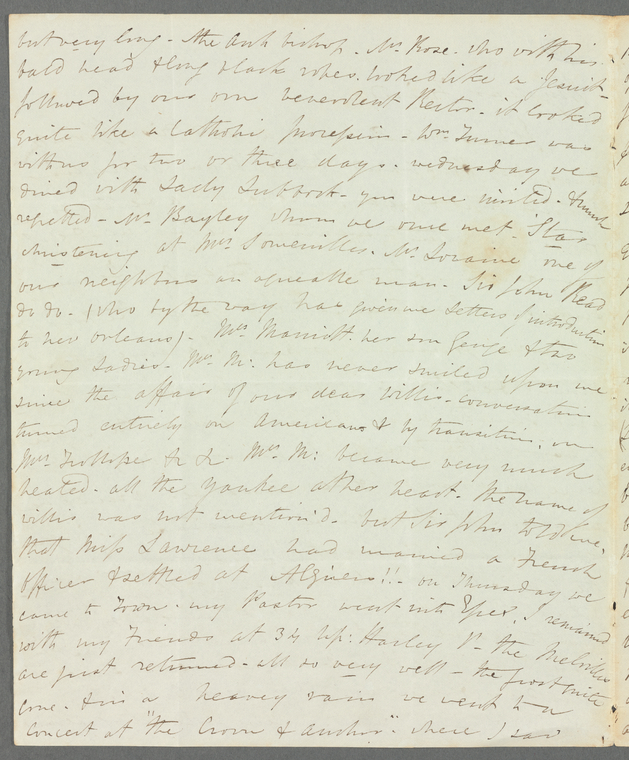 but very long - the Arch bishop - Mr Rose - who with his
bald head & long black robes looked like a Jesuit -
followed by our own benevolent Rector - it looked
quite like a Catholic procession - Wm Turner was
with us for two or three days - wednesday we
dined with Lady Lubbock - you were invited - & much
regretted - Mr Bayley whom we once met
christening at Mrs Somervilles - Mr Loraine one of
our neighbours an agreeable man - Sir John Read
do do - (who by the way has given me Letters of introduction
to new orleans) - Mrs Marriott her son George & two
young Ladies - Mrs M: has never smiled upon me
since the affair of our dear Willis - conversation
turned entirely on Americans & by transition, on
Mrs Trollope &c &c - Mrs M: became very much
heated - all the Yankee at her heart - the name of
willis was not mention'd - but Sir John told me,
that Miss Lawrence had married a French
officer & settled at Algiers!! - on Thursday we
came to Town - my Pastor went into Essex, I remained
with my Friends at 34 Up: Harley St - the Melvilles
are just returned - all so very well - the first nite
come - & in a heavey rain we went to a
concert at "the Crown & anchor" - where I saw